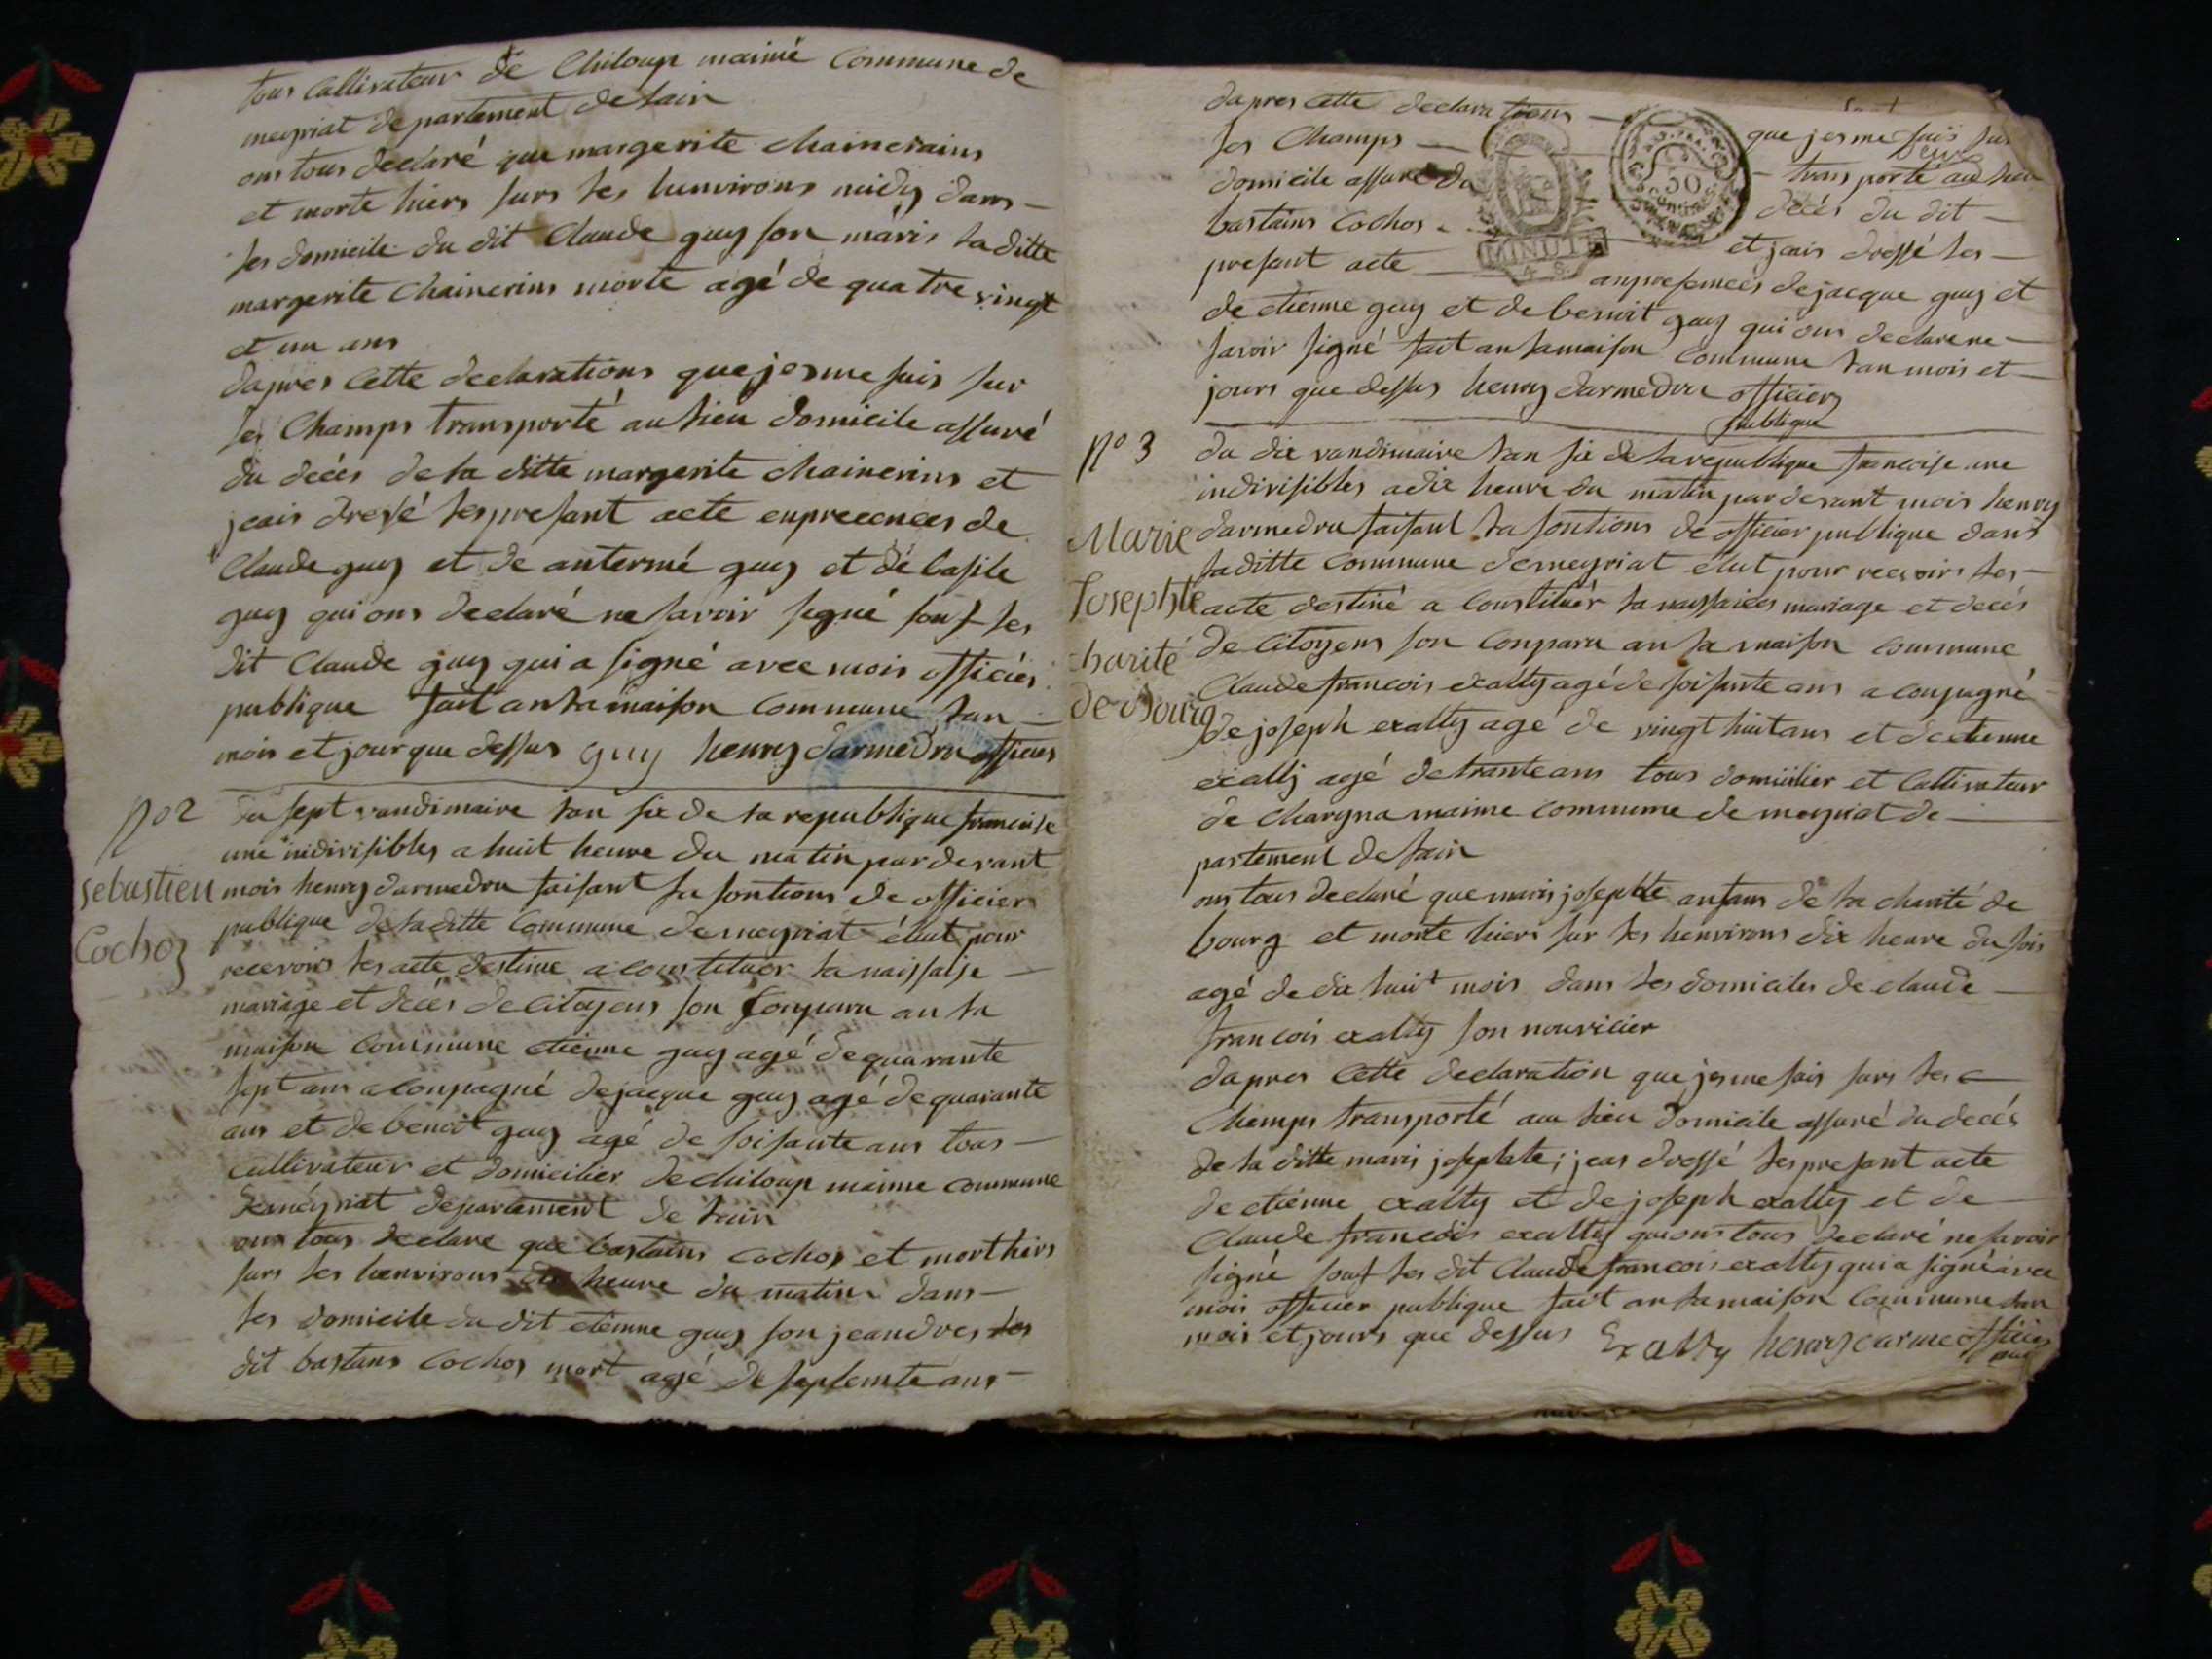 tous Cultivateur de Chiloup maime Commune de
meyriat departement de lain
ons tous declaré que margerite chainerains
et morte hiers surs les henvirons midy dans
les domicile du dit Claude guy son maris la ditte
margerite chainerins morte agé de quatre vingt
et un ans
dapres cette declarations que jes me suis sur
les Champs transporté au lieu domicile assuré
du decés de la ditte margerite chainerins et
jeais dressé les presant acte enprecences de
Claude guy et de antermé guy et de basile
guy qui ons declaré ne savoir signé souf les
dit Claude guy qui a signé avec mois officiés
publique fait an la maison commune lan
mois et jour que dessus guy henry darmedru officier
No 2 du sept vandimaire lan six de la republique francoise
une indivisibles a huit heure du matin par devant
sebastien mois henry darmedru faisant la fontions de officier
publique de la ditte commune de meyriat élut pour
Cochoz recevoirs les acte destinne a constituer la naissasse
mariage et decés de Citoyens son Conparu an la
maison commune etienne guy agé de quarante
sept ans aconpagné de jacque guy agé de quarante
ans et de benoit guy agé de soisante ans tous
cultivateur et domicilier de chiloup maime commune
de meyriat departement de lain
ons tous declaré que bastains cochos et mort hiers
surs les henvirons heure du matin dans
les domicile du dit etienne guy son jeandres les
dit bastans cochos mort agé de septente ans
dapres cette declarations que jes me suis sur
les Champs transporté au lieu
domicile assuré du decés du dit
bastains Cochos et jais dressé les
presant acte anpresences de jacque guy et
MINUTE
50
de etienne guy et de benoit guy qui ons declare ne
savoir signé fait an la maison commune lan mois et
jours que dessus henry darmedru officiers
publique
No 3 du dix vandimaire lan six de la republique francoise une
indivisibles a dix heure du matin par devant mois henry
Marie darmedru faisant la fontions de officier publique dans
la ditte commune de meyriat élut pour recevoirs les
Josephte acte destiné a constituér la naissaices mariage et decés
de Citoyens son Conparu an la maison commune
charité Claude francois exalty agé de soisante ans aconpagné
de Bourg de joseph exalty agé de vingt huit ans et de etienne
exalty agé de trante ans tous domicilier et Cultivateur
de charyna maime commune de meyriat de
partement de lain
ons tous declaré que maris josephte anfans de la charité de
bourg et morte hiers sur les henvirons dix heure du sois
agé de dix huit mois dans les domiciles de claude
francois exalty son nouricier
dapres Cette declaration que jes me suis surs les
Chemps transporté au lieu domicile assuré du decés
de la ditte maris josephte; jeas dressé les presant acte
de etienne exalty et de joseph exalty et de
Claude francois exalty qui ons tous declaré ne savoir
signé souf les dit Claude francois exalty qui a signé avec
mois officier publique fait an la maison Commune lan
mois et jours que dessus Exalty henry darme officier